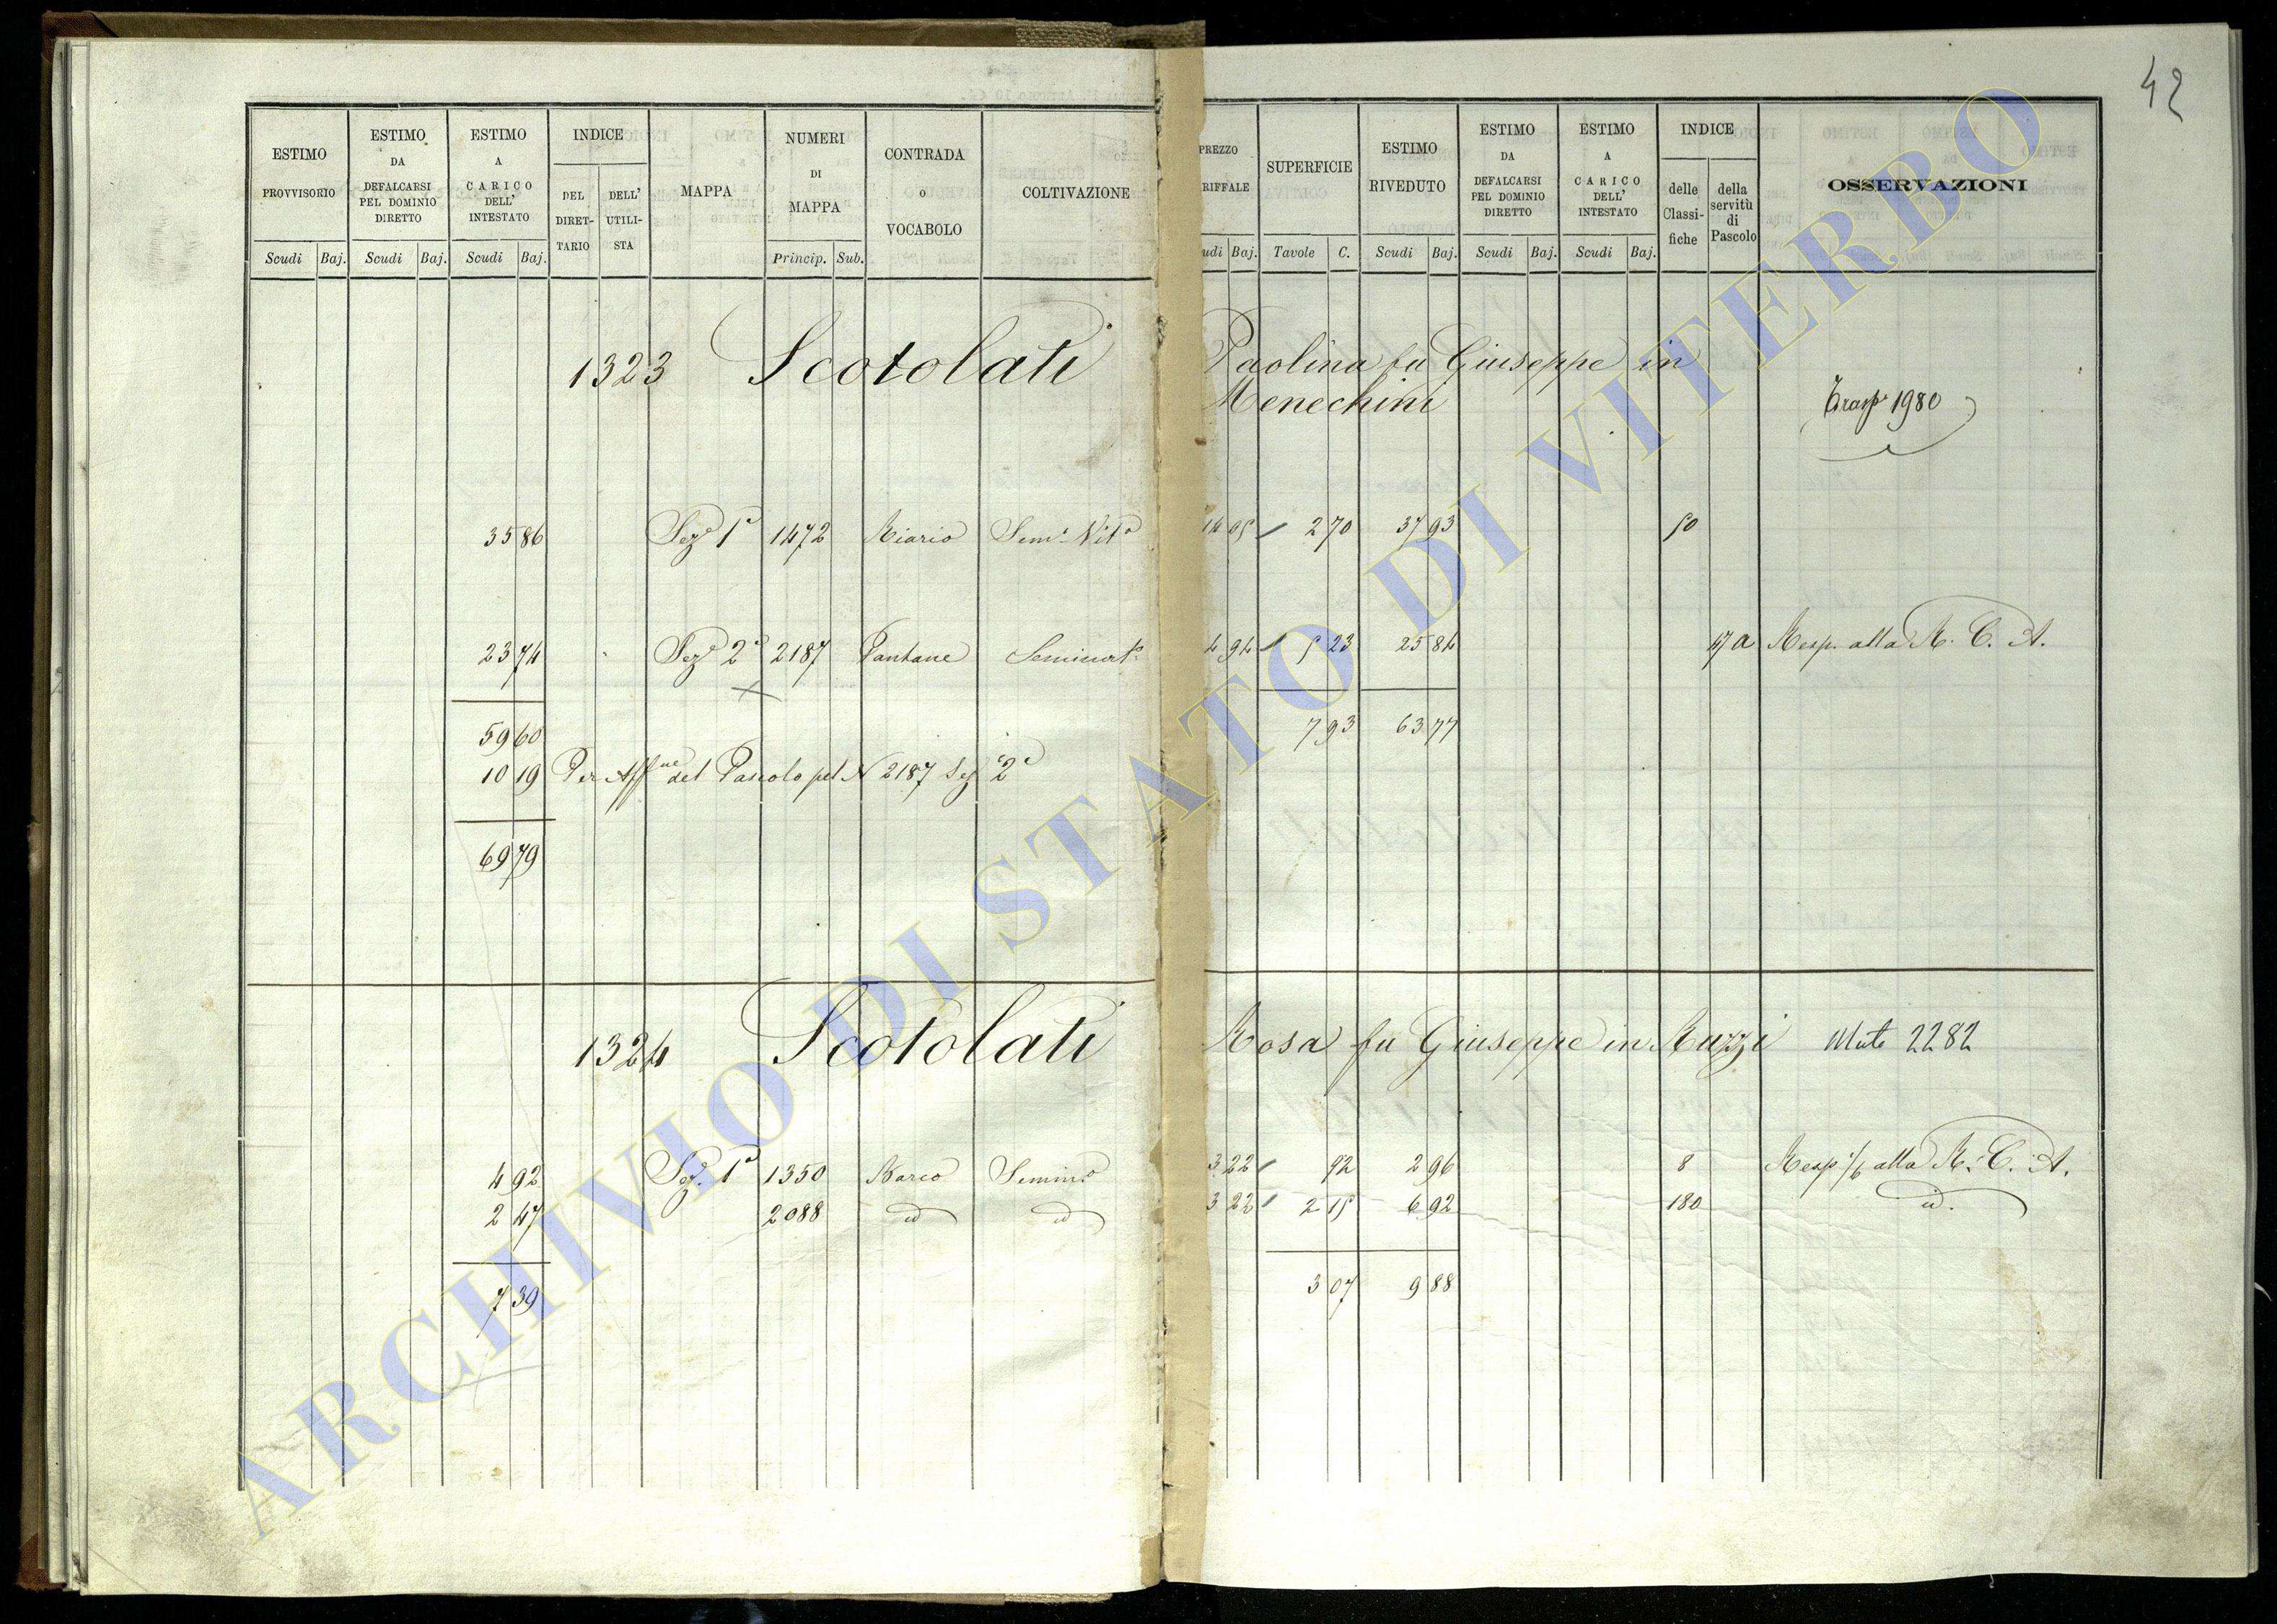 42
ESTIMO PROVVISORIO
ESTIMO DA DEFALCARSI PEL DOMINIO DIRETTO
ESTIMO A CARICO DELL' INTESTATO
INDICE
DEL DIRET-TARIO
DELL' UTILI-STA
MAPPA
NUMERI DI MAPPA
CONTRADA o VOCABOLO
COLTIVAZIONE
PREZZO RIFFALE
SUPERFICIE
ESTIMO RIVEDUTO
ESTIMO DA DEFALCARSI PEL DOMINIO DIRETTO
ESTIMO A CARICO DELL' INTESTATO
INDICE
delle Classi-fiche
della servitù di Pascolo
OSSERVAZIONI
Scudi Baj. Scudi Baj. Scudi Baj. Princip. Sub. udi Baj. Tavole C. Scudi Baj. Scudi Baj. Scudi Baj.
1323 Scotolati Paolina fu Giuseppe in
Menechini
Trasp. 1980
35 86 Sez. 1a 1472 Riario Sem. Vit. 14 05 2 70 37 93 50
23 74 Sez. 2a 2187 Pantane Seminat. 4 94 5 23 25 84 17 a Resp. alla R. C. A.
59 60 7 93 63 77
10 19 Per Aff.ne del Pascolo pel N 2187 Sez 2a
69 79
1324 Scotolati Rosa fu Giuseppe in Ruzzi Mut. 2282
4 92 Sez. 1a 1350 Barco Semin. 3 22 92 2 96 8 Resp. 1/6 alla R. C. A.
2 47 2088 id id 3 22 2 15 6 92 180 id.
7 39 3 07 9 88
ARCHIVIO DI STATO DI VITERBO